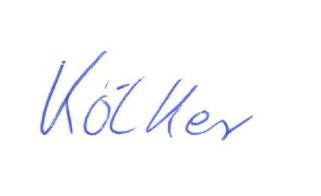 Kölker